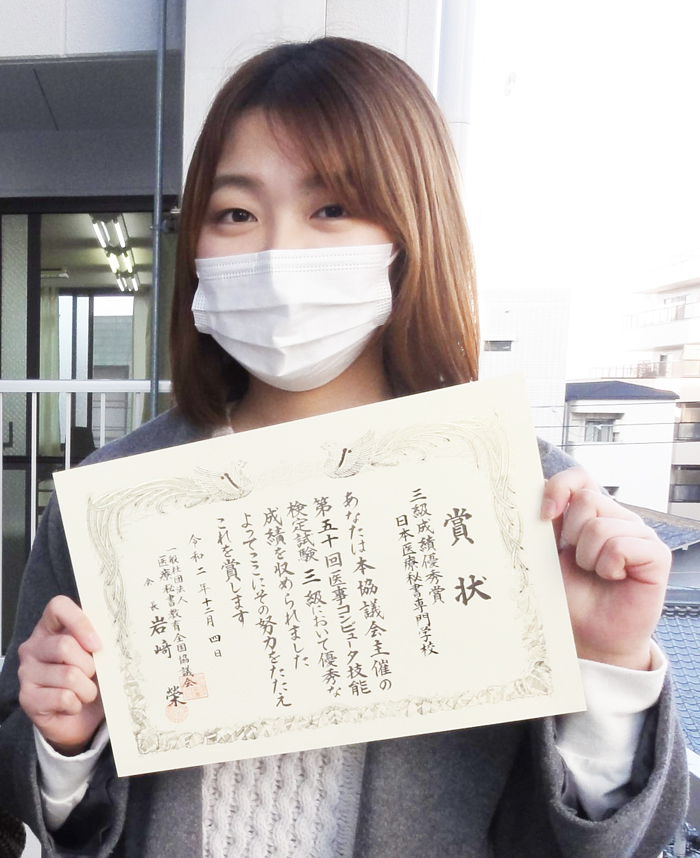 賞状
三級成績優秀賞
日本医療秘書専門学校
あなたは本協議会主催の
第五十回医事コンピュータ技能
検定試験三級において優秀な
成績を収められました
よってここにその努力をたたえ
これを賞します
令和二年十二月四日
一般社団法人
医療秘書教育全国協議会
会長 岩﨑 榮